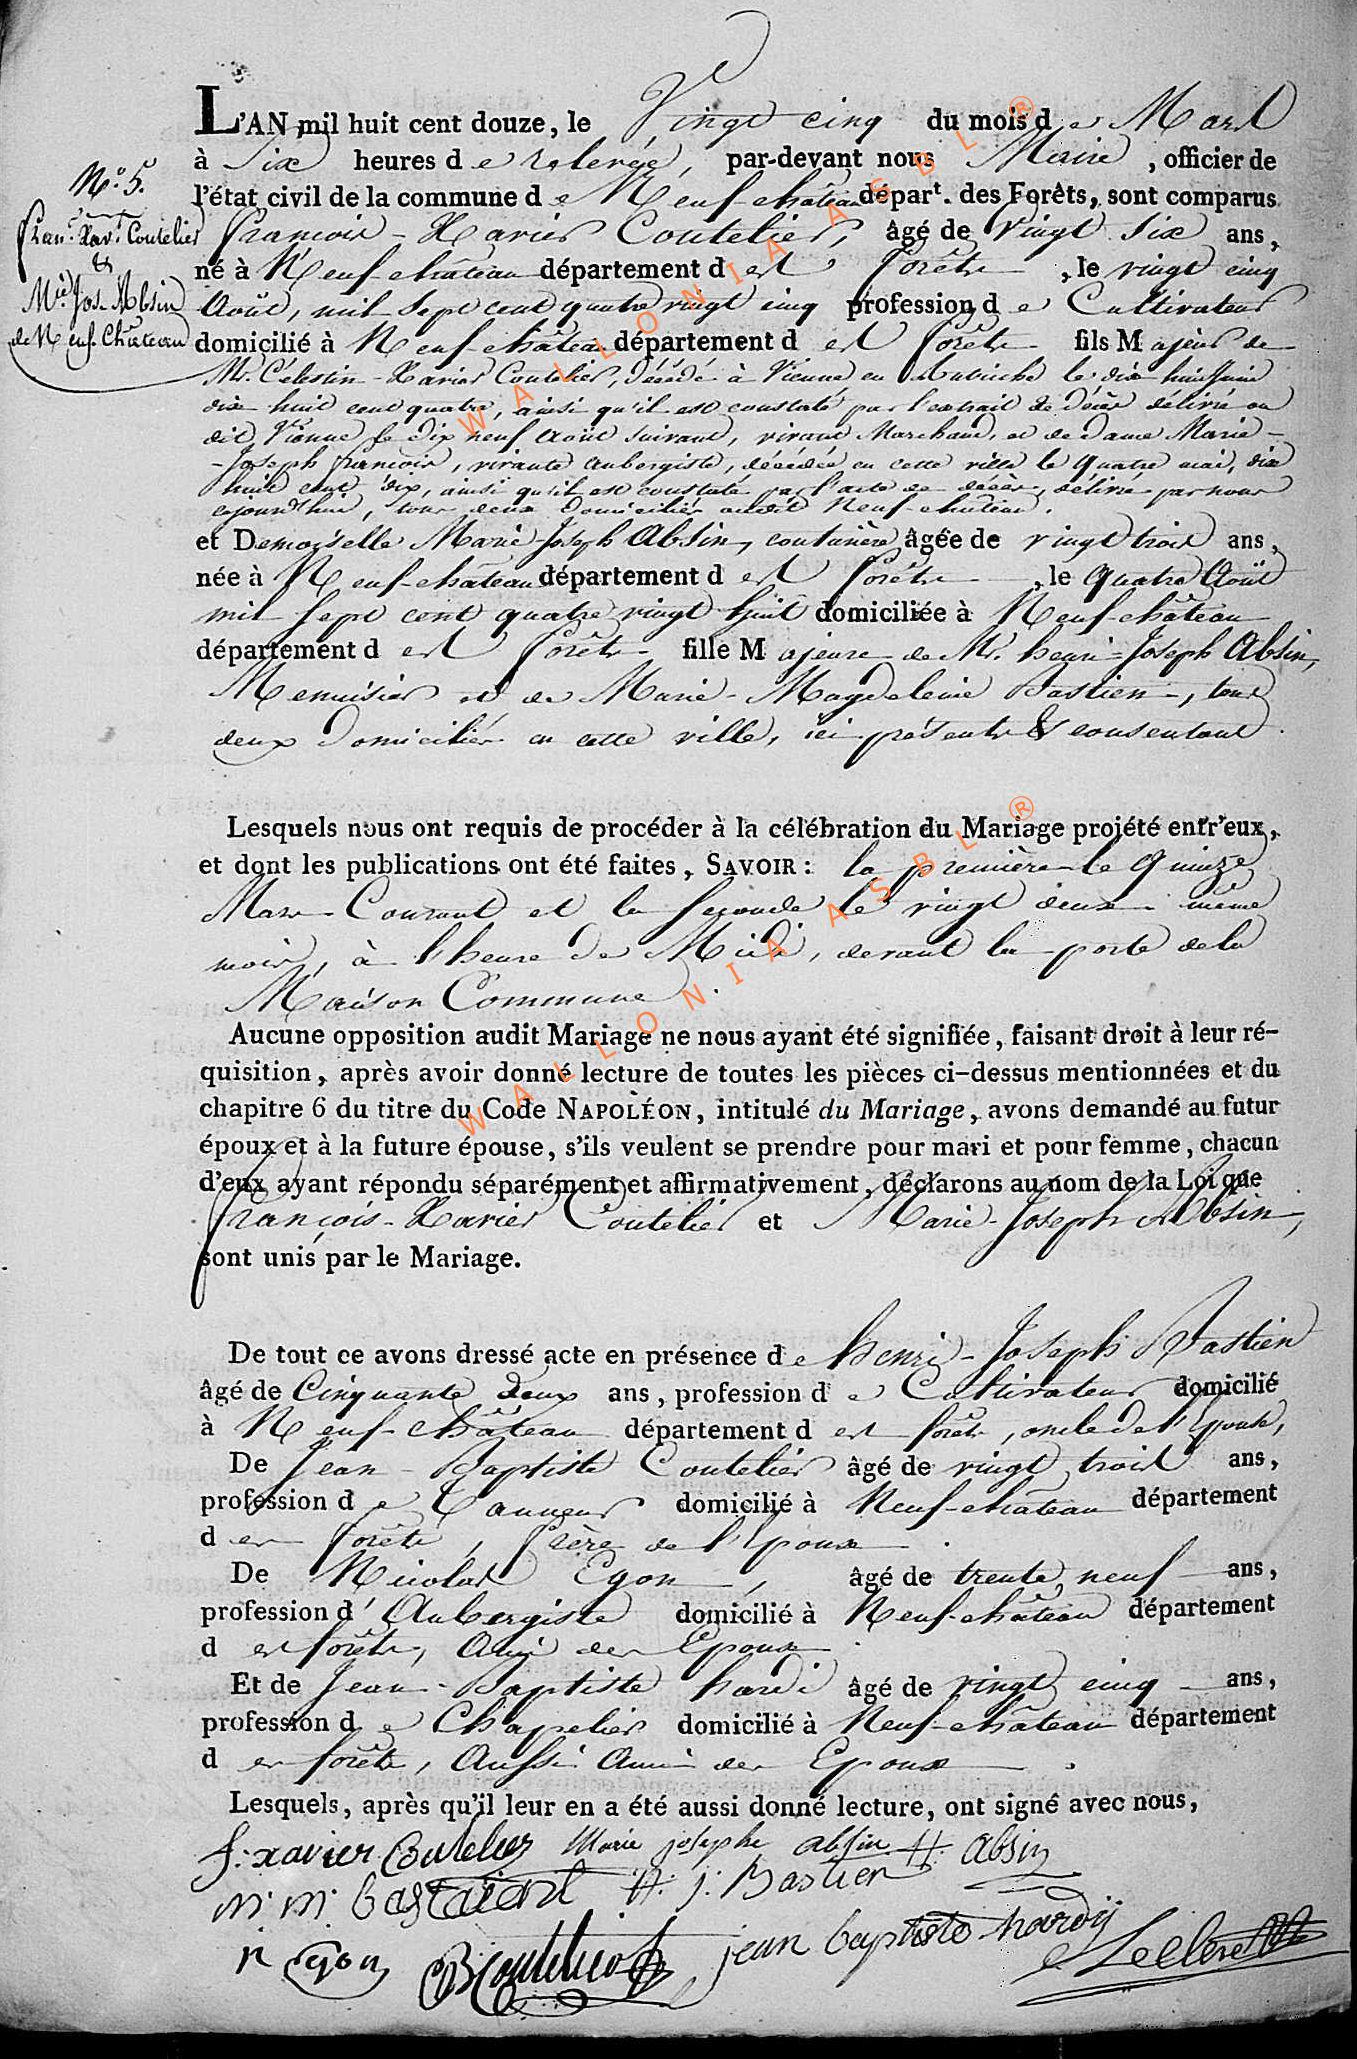 L'AN mil huit cent douze, le Vingt cinq du mois de Mars
à Six heures de relevée, par-devant nous Maire, officier de
l'état civil de la commune de Neufchâteau départ. des Forêts, sont comparus
N.° 5.
Fran.s Xav.r Coutelier
&
M.ie Jos. Absin
de Neuf-Château
François-Xavier Coutelier, âgé de Vingt Six ans,
né à Neufchâteau département des forêts, le vingt cinq
Août, mil sept cent quatre vingt cinq profession de Cultivateur
domicilié à Neufchâteau département des forêts fils Majeur de
Mr. Célestin-Xavier Coutelier, décédé à Vienne en Autriche le dix huit Juin
dix huit cent quatre, ainsi qu'il est constaté par l'extrait de décès délivré au
dit Vienne le dix neuf Août suivant, vivant Marchand, et de dame Marie-
-Joseph François, vivante aubergiste, décédée en cette ville le quatre mai, dix
huit cent dix, ainsi qu'il est constaté par l'acte de décès, délivré par nous
cejourd'hui, tous deux domiciliés audit Neufchâteau.
et Demoiselle Marie-Joseph Absin, couturière âgée de vingt trois ans,
née à Neufchâteau département des forêts, le quatre Août
mil sept cent quatre vingt huit domiciliée à Neufchâteau
département des forêts fille Majeure de Mr. henri-Joseph Absin,
Menuisier et de Marie-Magdeleine Bastien, tous
deux domiciliés en cette ville, ici présents & consentant
Lesquels nous ont requis de procéder à la célébration du Mariage projété entr'eux,
et dont les publications ont été faites, SAVOIR: la première le quinze
Mars Courant et la seconde le vingt deux même
mois, à l'heure de Midi, devant la porte de la
Maison Commune.
Aucune opposition audit Mariage ne nous ayant été signifiée, faisant droit à leur ré-
quisition, après avoir donné lecture de toutes les pièces ci-dessus mentionnées et du
chapitre 6 du titre du Code NAPOLÉON, intitulé du Mariage, avons demandé au futur
époux et à la future épouse, s'ils veulent se prendre pour mari et pour femme, chacun
d'eux ayant répondu séparément et affirmativement, déclarons au nom de la Loi que
François-Xavier Coutelier et Marie-Joseph Absin,
sont unis par le Mariage.
De tout ce avons dressé acte en présence de henri-Joseph Bastien
âgé de Cinquante deux ans, profession de Cultivateur domicilié
à Neufchâteau département des forêts, oncle de l'Epouse,
De Jean-Baptiste Coutelier âgé de vingt trois ans,
profession de Tanneur domicilié à Neufchâteau département
des forêts, frère de l'Epoux.
De Nicolas Egon, âgé de trente neuf ans,
profession d'Aubergiste domicilié à Neufchâteau département
des forêts, Ami des Epoux.
Et de Jean-Baptiste hardi âgé de vingt cinq ans,
profession de Chapelier domicilié à Neufchâteau département
des forêts, aussi Ami des Epoux.
Lesquels, après qu'il leur en a été aussi donné lecture, ont signé avec nous,
f: xavier Coutelier Marie josephe absin H. absin
m: m: bastaient H: j: Bastien
n Egon JBCoutelier jean baptiste hardij Leclere
WALLONIA ASBL ®
WALLONIA ASBL ®